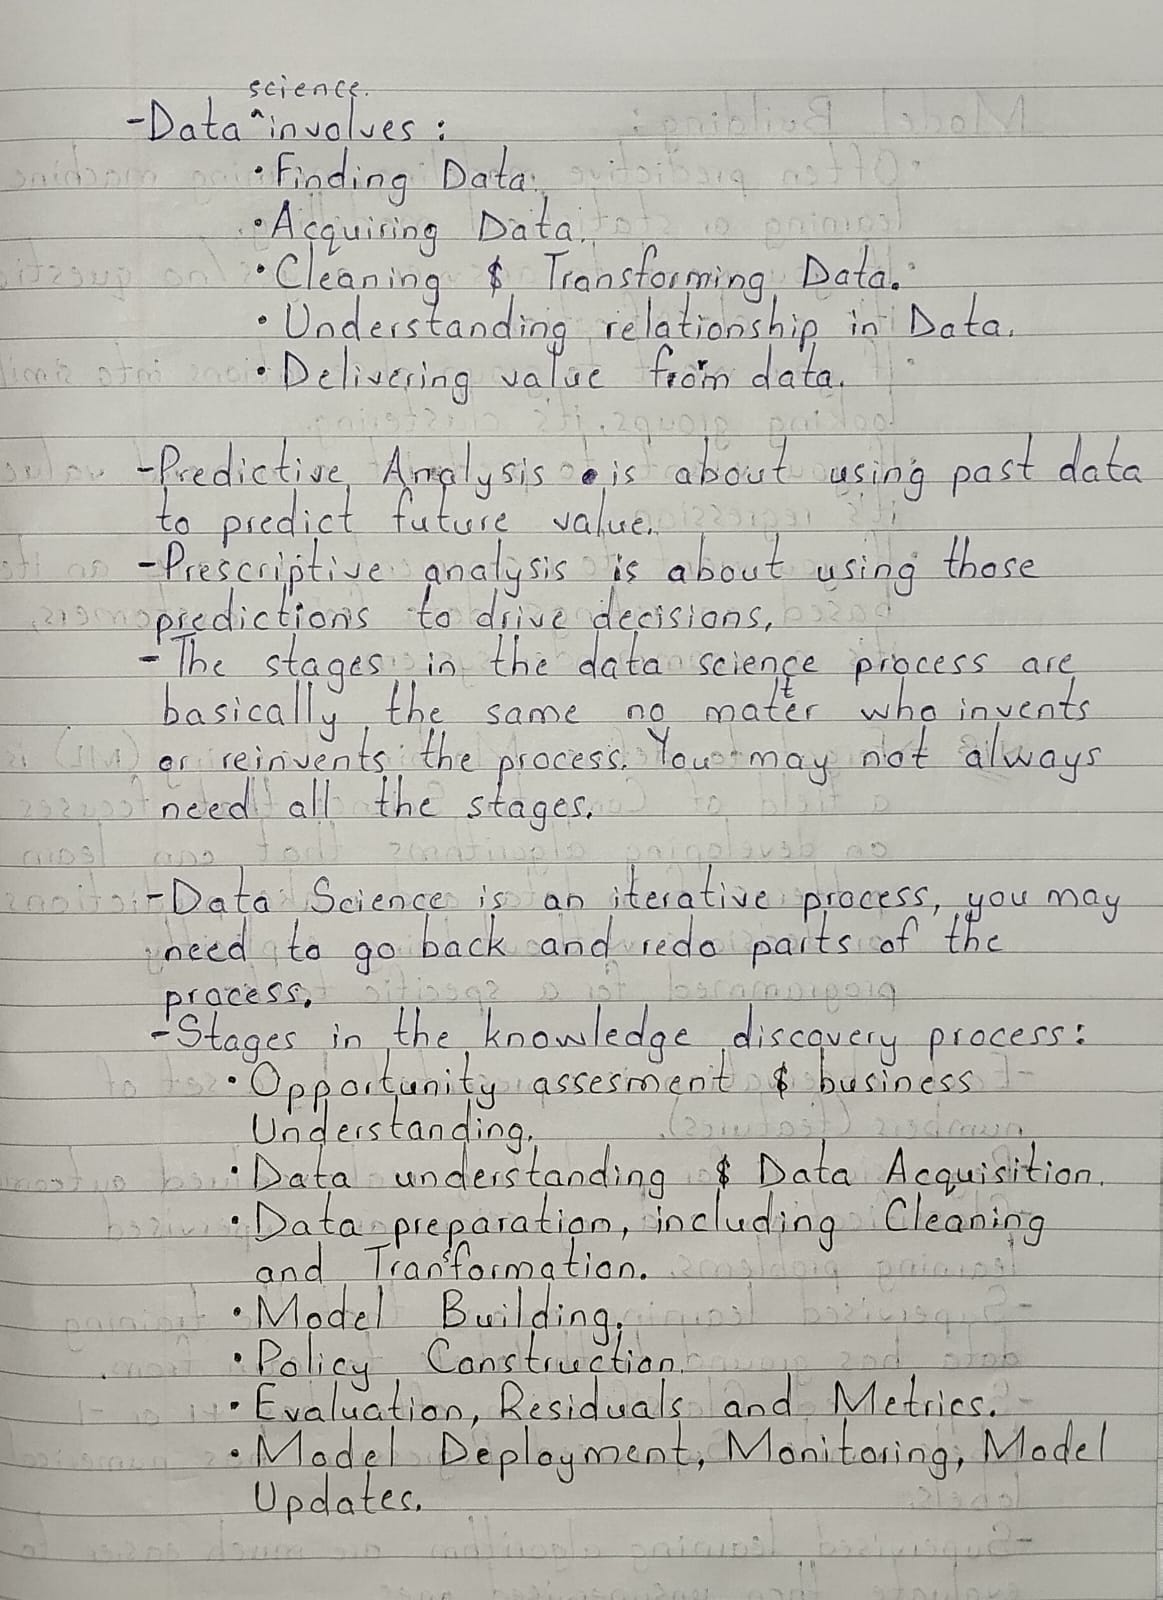 science.
-Data ^ involves :
• Finding Data.
• Acquiring Data.
• Cleaning & Transforming Data.
• Understanding relationship in Data.
• Delivering value from data.
-Predictive Analysis is about using past data
to predict future value.
-Prescriptive analysis is about using those
predictions to drive decisions.
-The stages in the data science process are
basically the same no matter who invents
or reinvents the process. You may not always
need all the stages.
-Data Science is an iterative process, you may
need to go back and redo parts of the
process.
-Stages in the knowledge discovery process:
• Opportunity assesment & business
Understanding.
• Data understanding & Data Acquisition.
• Data preparation, including Cleaning
and Transformation.
• Model Building.
• Policy Construction.
• Evaluation, Residuals and Metrics.
• Model Deployment, Monitoring, Model
Updates.